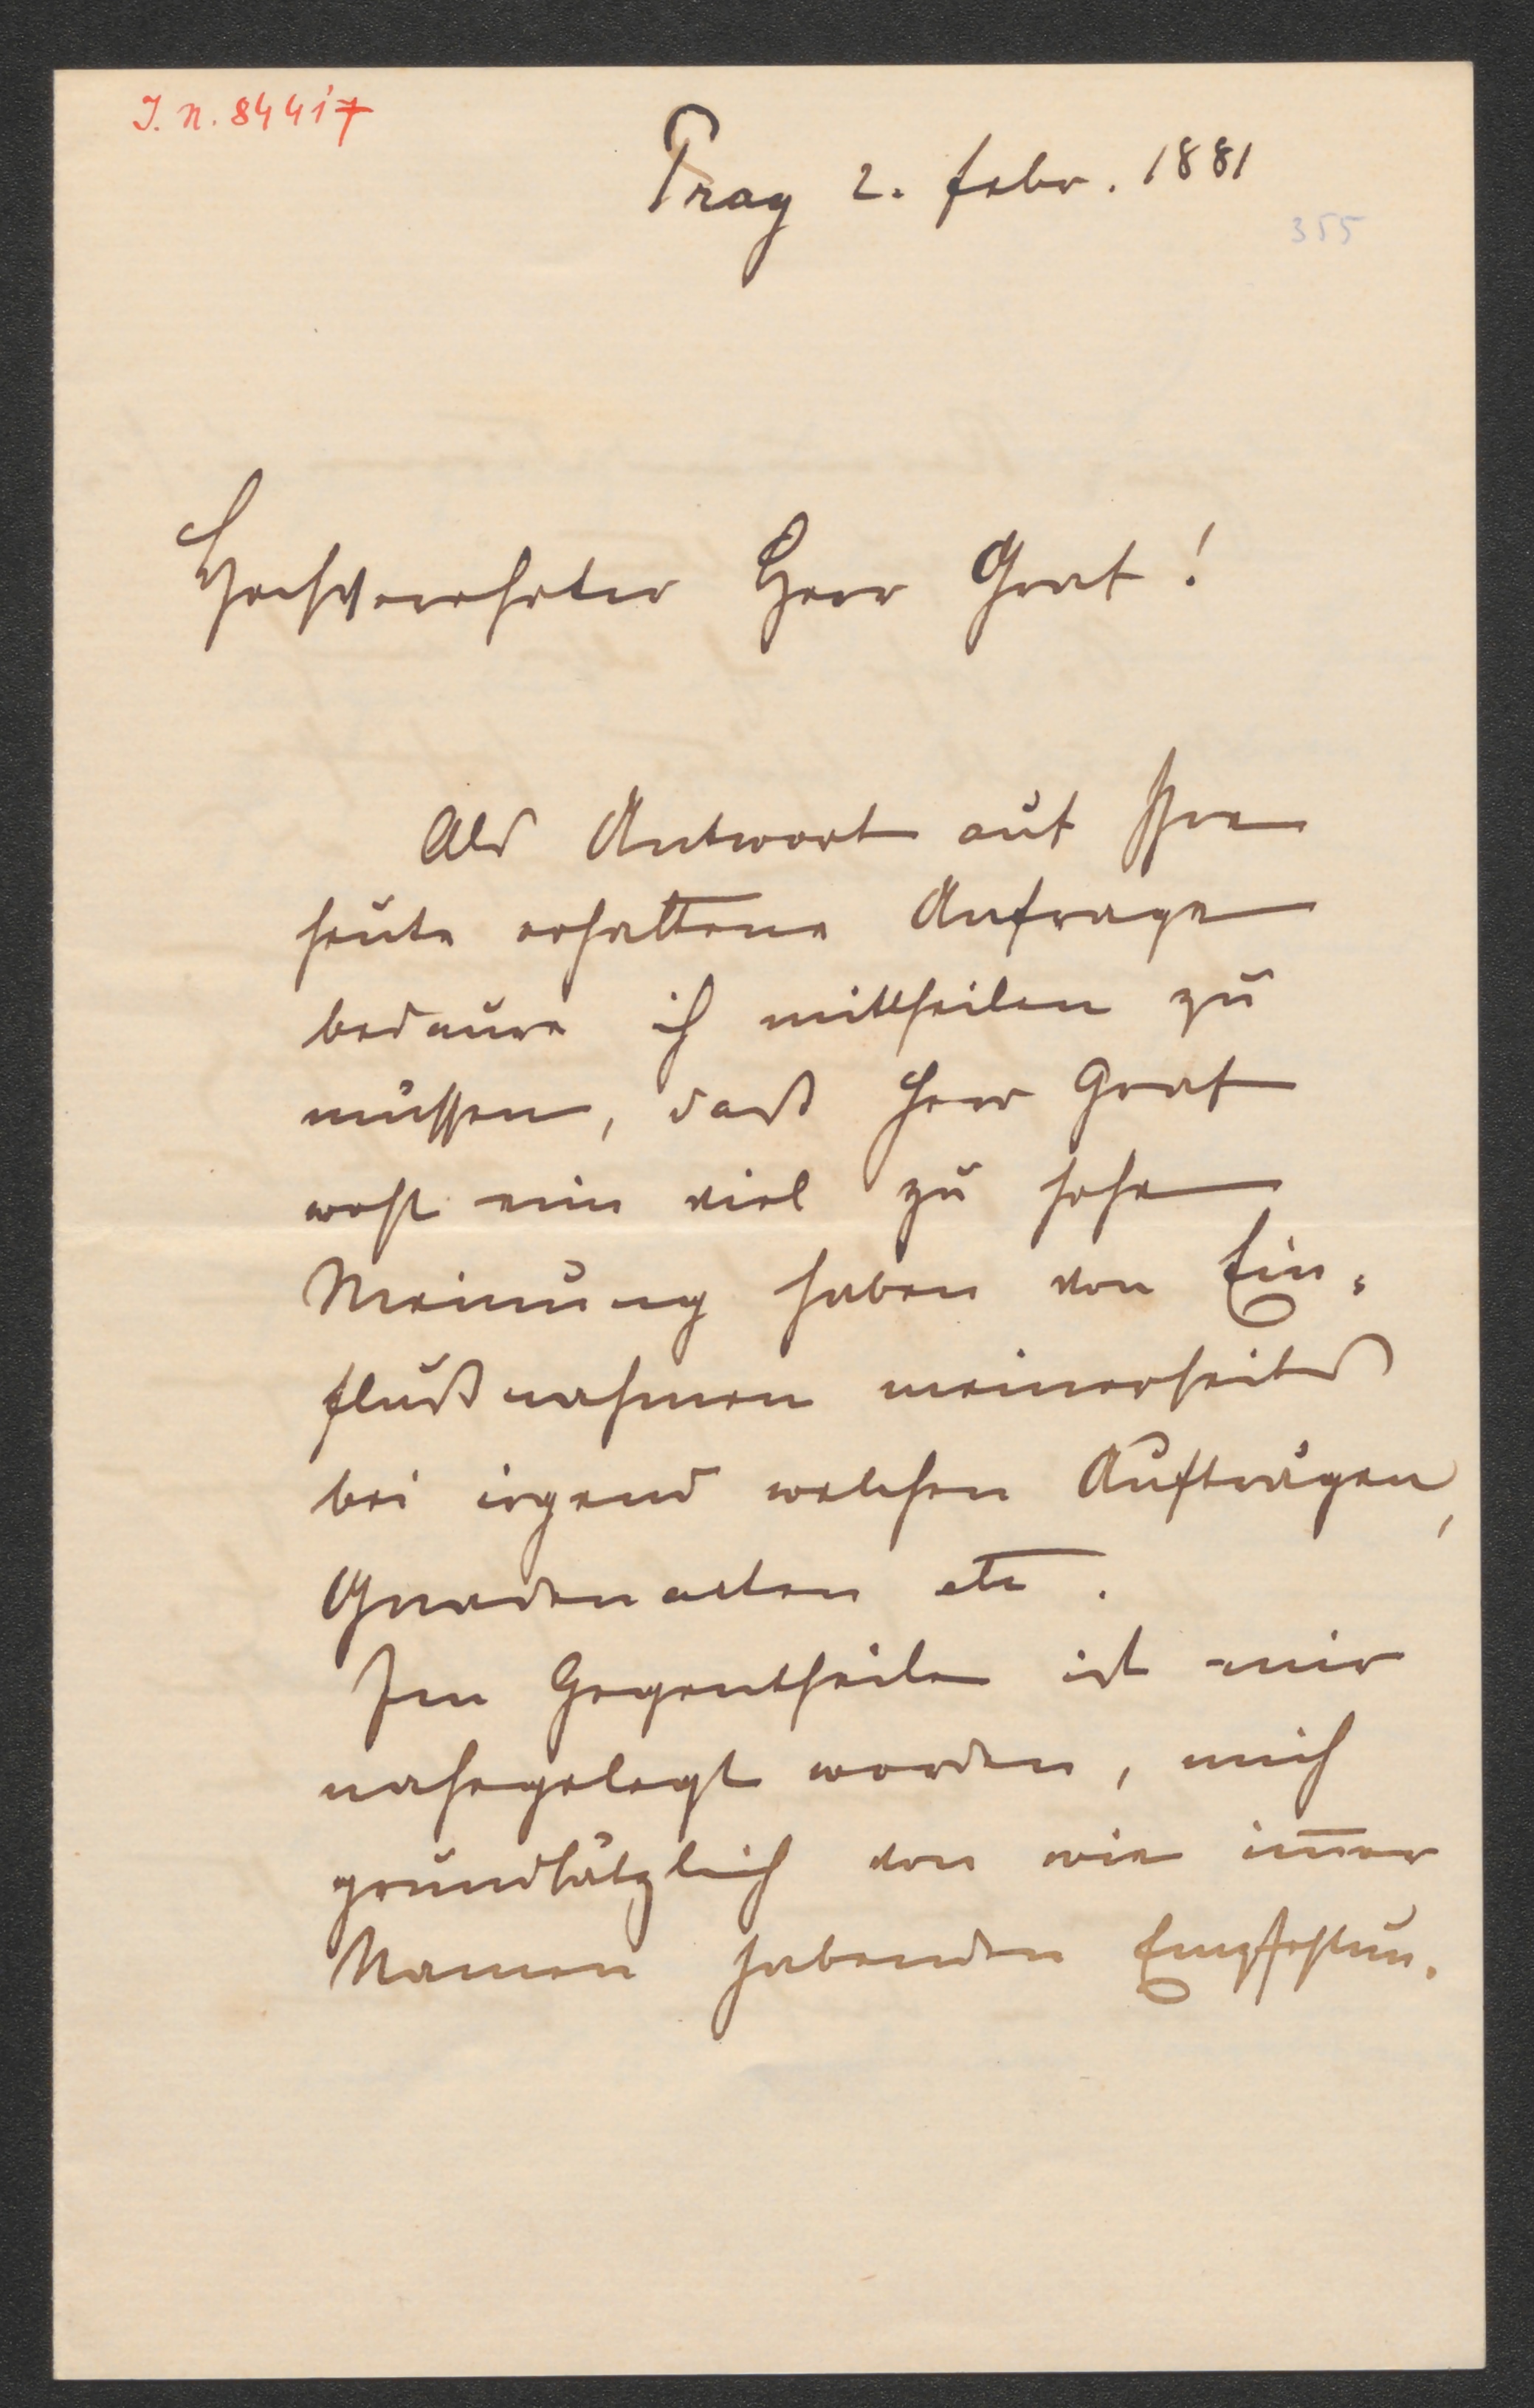 I. N. 84417
Prag 2. Febr. 1881
355
Hochverehrter Herr Graf!
Als Antwort auf Ihre
heute erhaltene Anfrage
bedaure ich mittheilen zu
müssen, daß Herr Graf
wohl eine viel zu hohe
Meinung haben von Ein=
flußnahmen meinerseits
bei irgend welchen Aufträgen,
Gnadenacten etc.
Im Gegentheile ist mir
nahegelegt worden, mich
grundsätzlich von wie im̅er
Namen habenden Empfehlun=